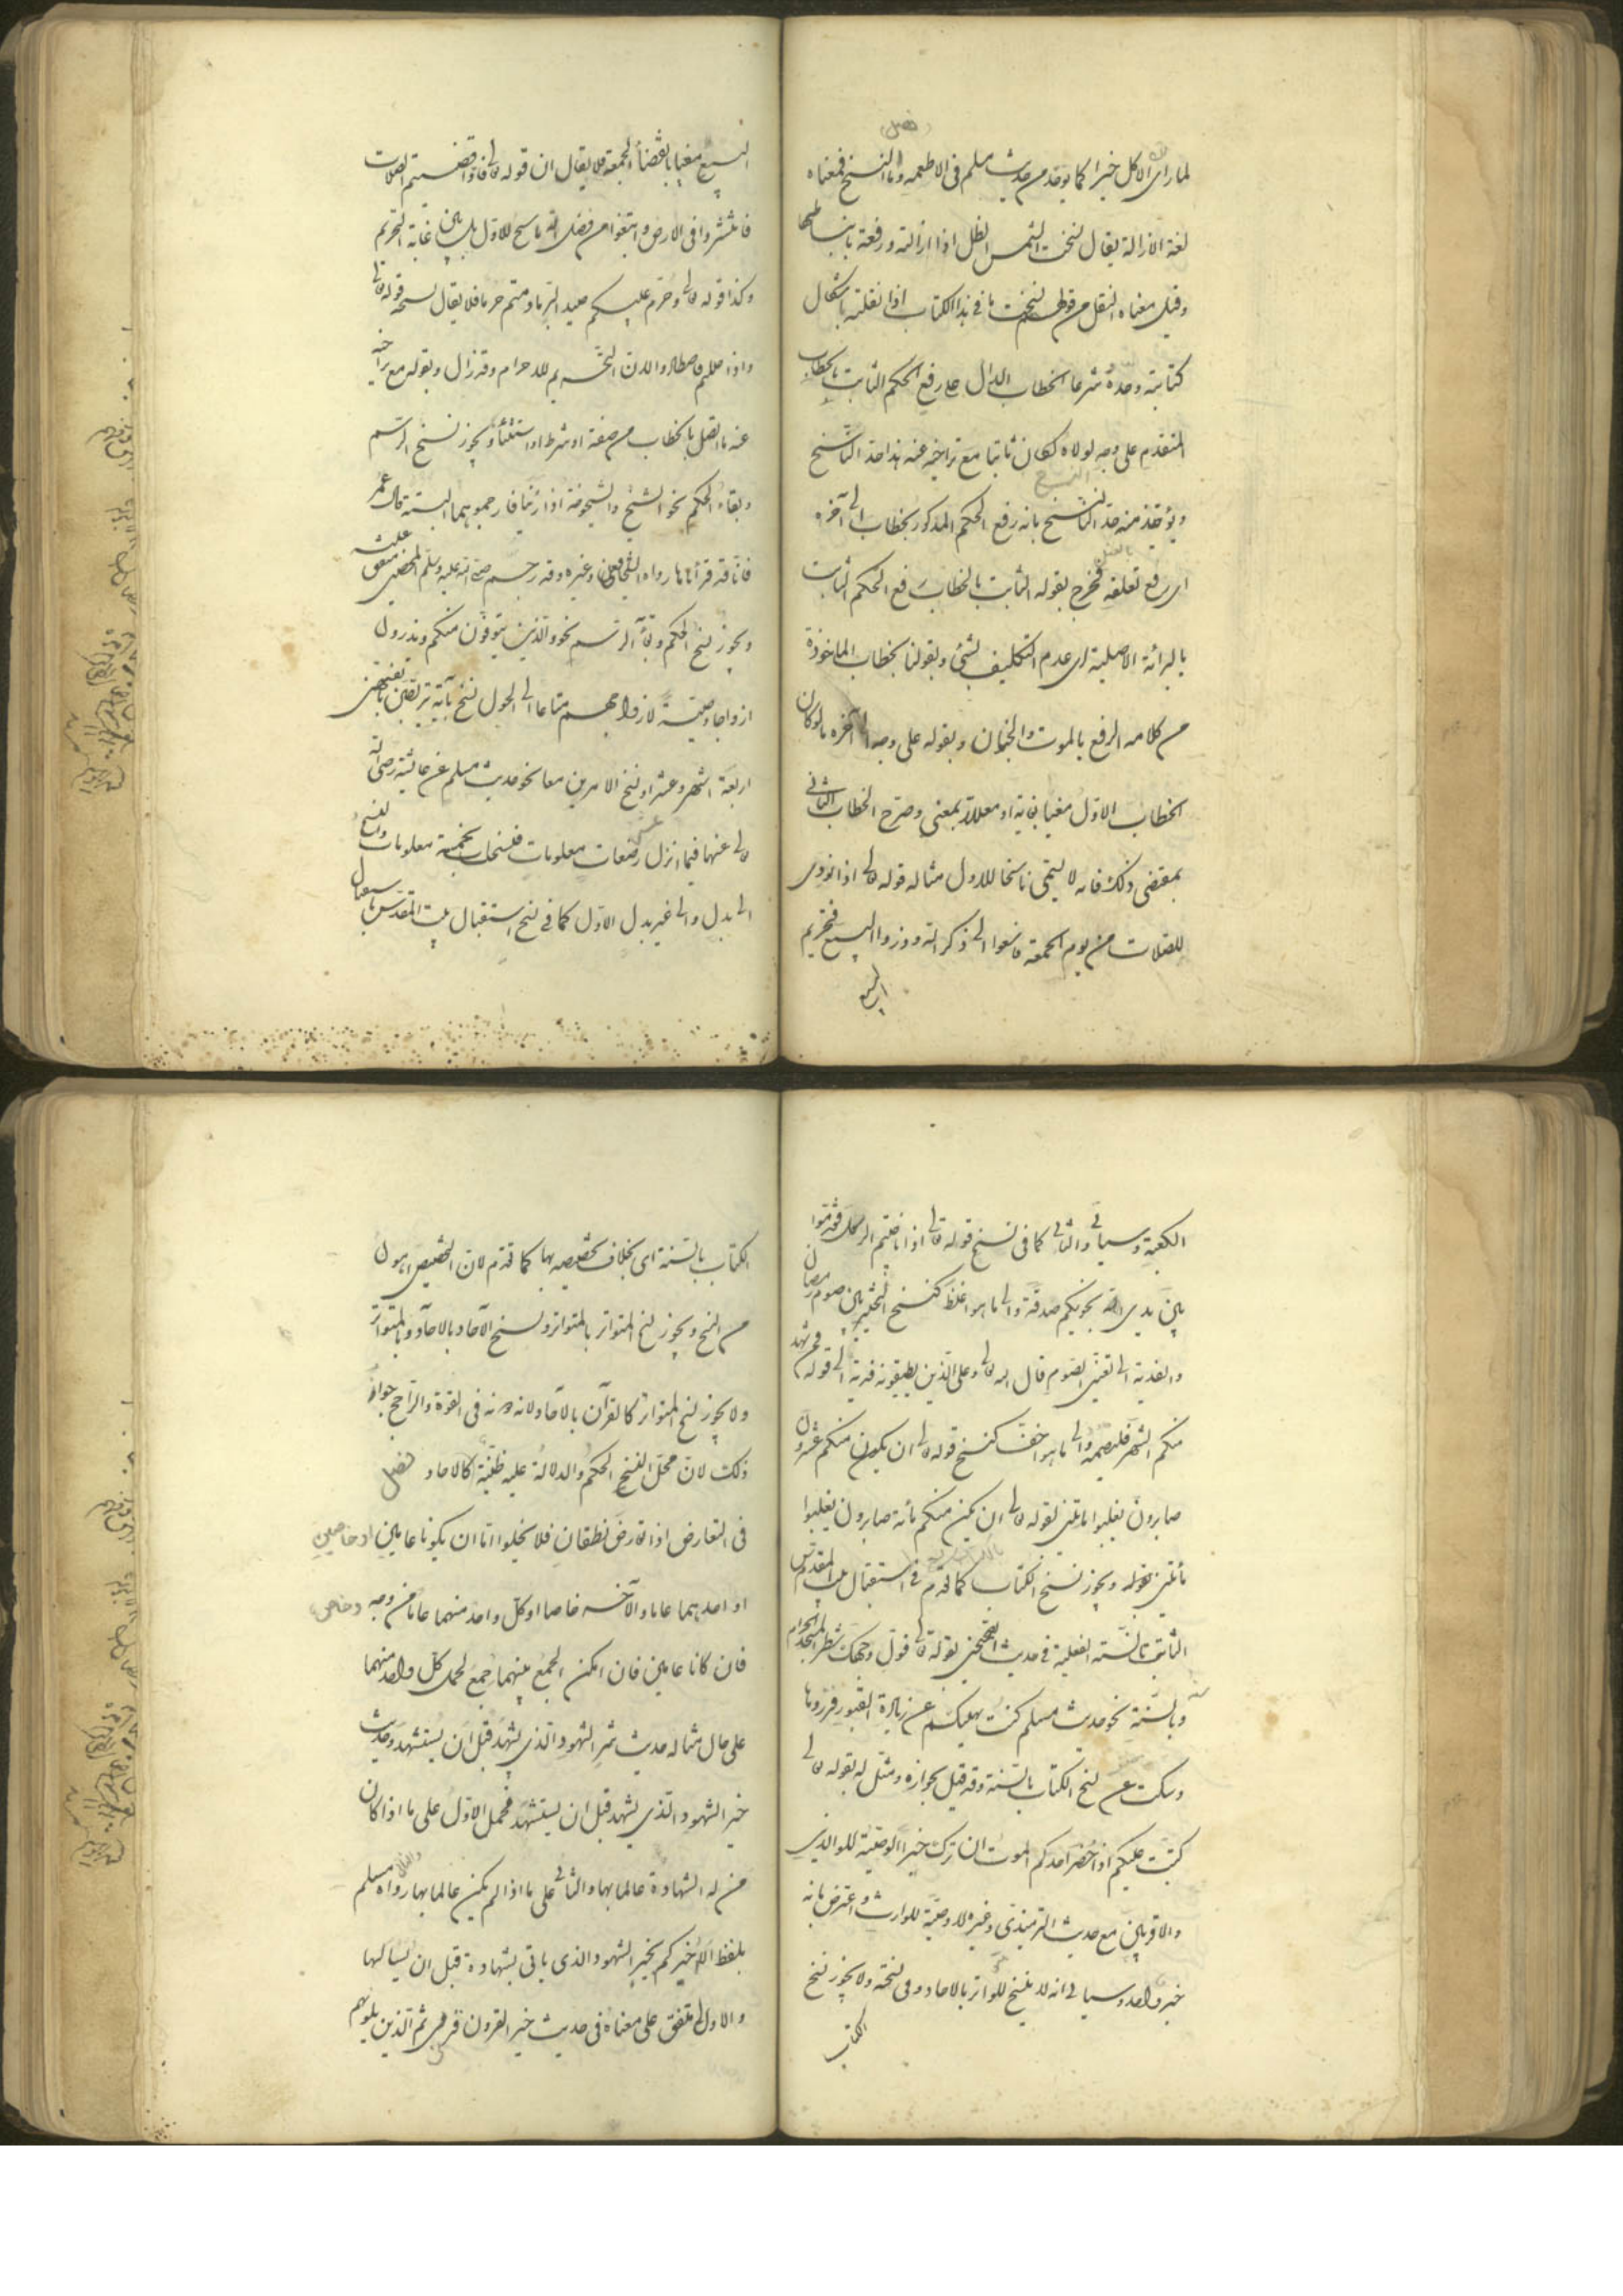 (فصل)
لما رأى الاكل خيرا كما يؤخذ من حديث مسلم فى الاطعمه واما النسخ فمعناه
لغة الازالة يقال نسخت الشمس الظل اذا ازالته ورفعته بانبساطها
وقيل معناه النقل من قولهم نسخت ما فى هذا الكتاب اذا نقلته باشكال
كتابته وحدّه شرعا الخطاب الدال على رفع الحكم الثابت بالخطاب
المتقدم على وجه لولاه لكان ثابتا مع تراخيه عنه هذا حد الناسخ
ويؤخذ منه حد النسخ بانه رفع الحكم المذكور بخطاب الى آخره
اى رفع تعلقه فخرج بقوله الثابت بالخطاب رفع الحكم الثابت
بالبرائة الاصلية اى عدم التكليف بشئ وبقولنا بخطاب الماخوذة
من كلامه الرفع بالموت والجنون وبقوله على وجه الى آخره ما لو كان
الخطاب الاول مغيا بغاية او معللا بمعنى وصرح الخطاب الثانى
بمقتضى ذلك فانه لا يسمى ناسخا للاول مثاله قوله تعالى اذا نودى
للصلات من يوم الجمعة فاسعوا الى ذكر الله وذروا البيع فتحريم
البيع
البيع مغيا بانقضأ الجمعة فلا يقال ان قوله تعالى فاذا قضيتم الصلات
فانتشروا فى الارض وابتغوا من فضل الله ناسخ للاول بل بين غاية التحريم
وكذا قوله تعالى وحرم عليكم صيد البر ما دمتم حرما فلا يقال نسخه قوله تعالى
واذا حللتم فاصطادوا لان التحريم للاحرام وقد زال وبقوله مع تراخيه
عنه ما اتصل بالخطاب من صفة او شرط او استثنأ ويجوز نسخ الرسم
وبقاء الحكم نحو الشيخ والشيخوخة اذا زنيا فارجموهما البتة قال عمر
فانا قد قرأناها رواه الشافعى وغيره وقد رجم صلى الله عليه وسلم المحصنين متفق عليه
ويجوز نسخ الحكم وبقأ الرسم نحو والذين يتوفون منكم ويذرون
ازواجا وصية لازواجهم متاعا الى الحول نسخ بآية يتربصن بانفسهن
اربعة اشهر وعشرا ونسخ الامرين معا نحو حديث مسلم عن عائشة رضى الله
تعالى عنها فيما انزل عشر رضعات معلومات فنسخت بخمس معلومات والنسخ
الى بدل والى غير بدل الاول كما فى نسخ استقبال بيت المقدس باستقبال
الكعبة وسيأتى والثانى كما فى نسخ قوله تعالى اذا ناجيتم الرسول فقدموا
بين يدى نجويكم صدقة والى ما هو اغلظ كنسخ التخيير بين صوم رمضان
والفدية الى تعيّن الصوم قال الله تعالى وعلى الذين يطيقونه فدية الى قوله فمن شهد
منكم الشهر فليصمه والى ما هو اخف كنسخ قوله تعالى ان يكون منكم عشرون
صابرون يغلبوا مائتين لقوله تعالى ان يكن منكم مائة صابرون يغلبوا
مائتين ويجوز نسخ الكتاب كما تقدم فى استقبال بيت المقدس
الثابت بالسنة الفعلية فى حديث الصحيحين بقوله تعالى فول وجهك شطر المسجد الحرام
وبالسنة نحو حديث مسلم كنت نهيتكم عن زيارة القبور فزوروها
وسكت عن نسخ الكتاب بالسنة وقد قيل بجوازه ومثل له بقوله تعالى
كتب عليكم اذا حضر احدكم الموت ان ترك خيرا الوصية للوالدين
والاقربين مع حديث الترمذى وغيره لا وصية للوارث واعترض بانه
خبر واحد وسيأتى انه لا ينسخ المتواتر بالاحاد وفى نسخة ولا يجوز نسخ
الكتاب
الكتاب بالسنة اى بخلاف تخصيصه بها كما تقدم لان التخصيص اهون
من النسخ ويجوز نسخ المتواتر بالمتواتر ونسخ الآحاد بالآحاد وبالمتواتر
ولا يجوز نسخ المتواتر كالقرآن بالآحاد لانه دونه فى القوة والراجح جواز
ذلك لان محل النسخ الحكم والدلالة عليه ظنية كالاحاد فصل
فى التعارض اذا تعارض نطقان فلا يخلوا اما ان يكونا عامين او خاصين
او احدهما عاما والآخر خاصا او كل واحد منهما عاما من وجه وخاص
فان كانا عامين فان امكن الجمع بينهما جمع لحمل كل واحد منهما
على حال مثاله حديث شر الشهود الذى يشهد قبل ان يستشهد وحديث
خير الشهود الذى يشهد قبل ان يستشهد فحمل الاول على ما اذا كان
من له الشهادة عالما بها والثانى على ما اذا لم يكن عالما بها والثانى رواه مسلم
بلفظ الا اخبركم بخير الشهود الذى ياتى بشهادة قبل ان يسألها
والاول متفق على معناه فى حديث خير القرون قرنى ثم الذين يلونهم